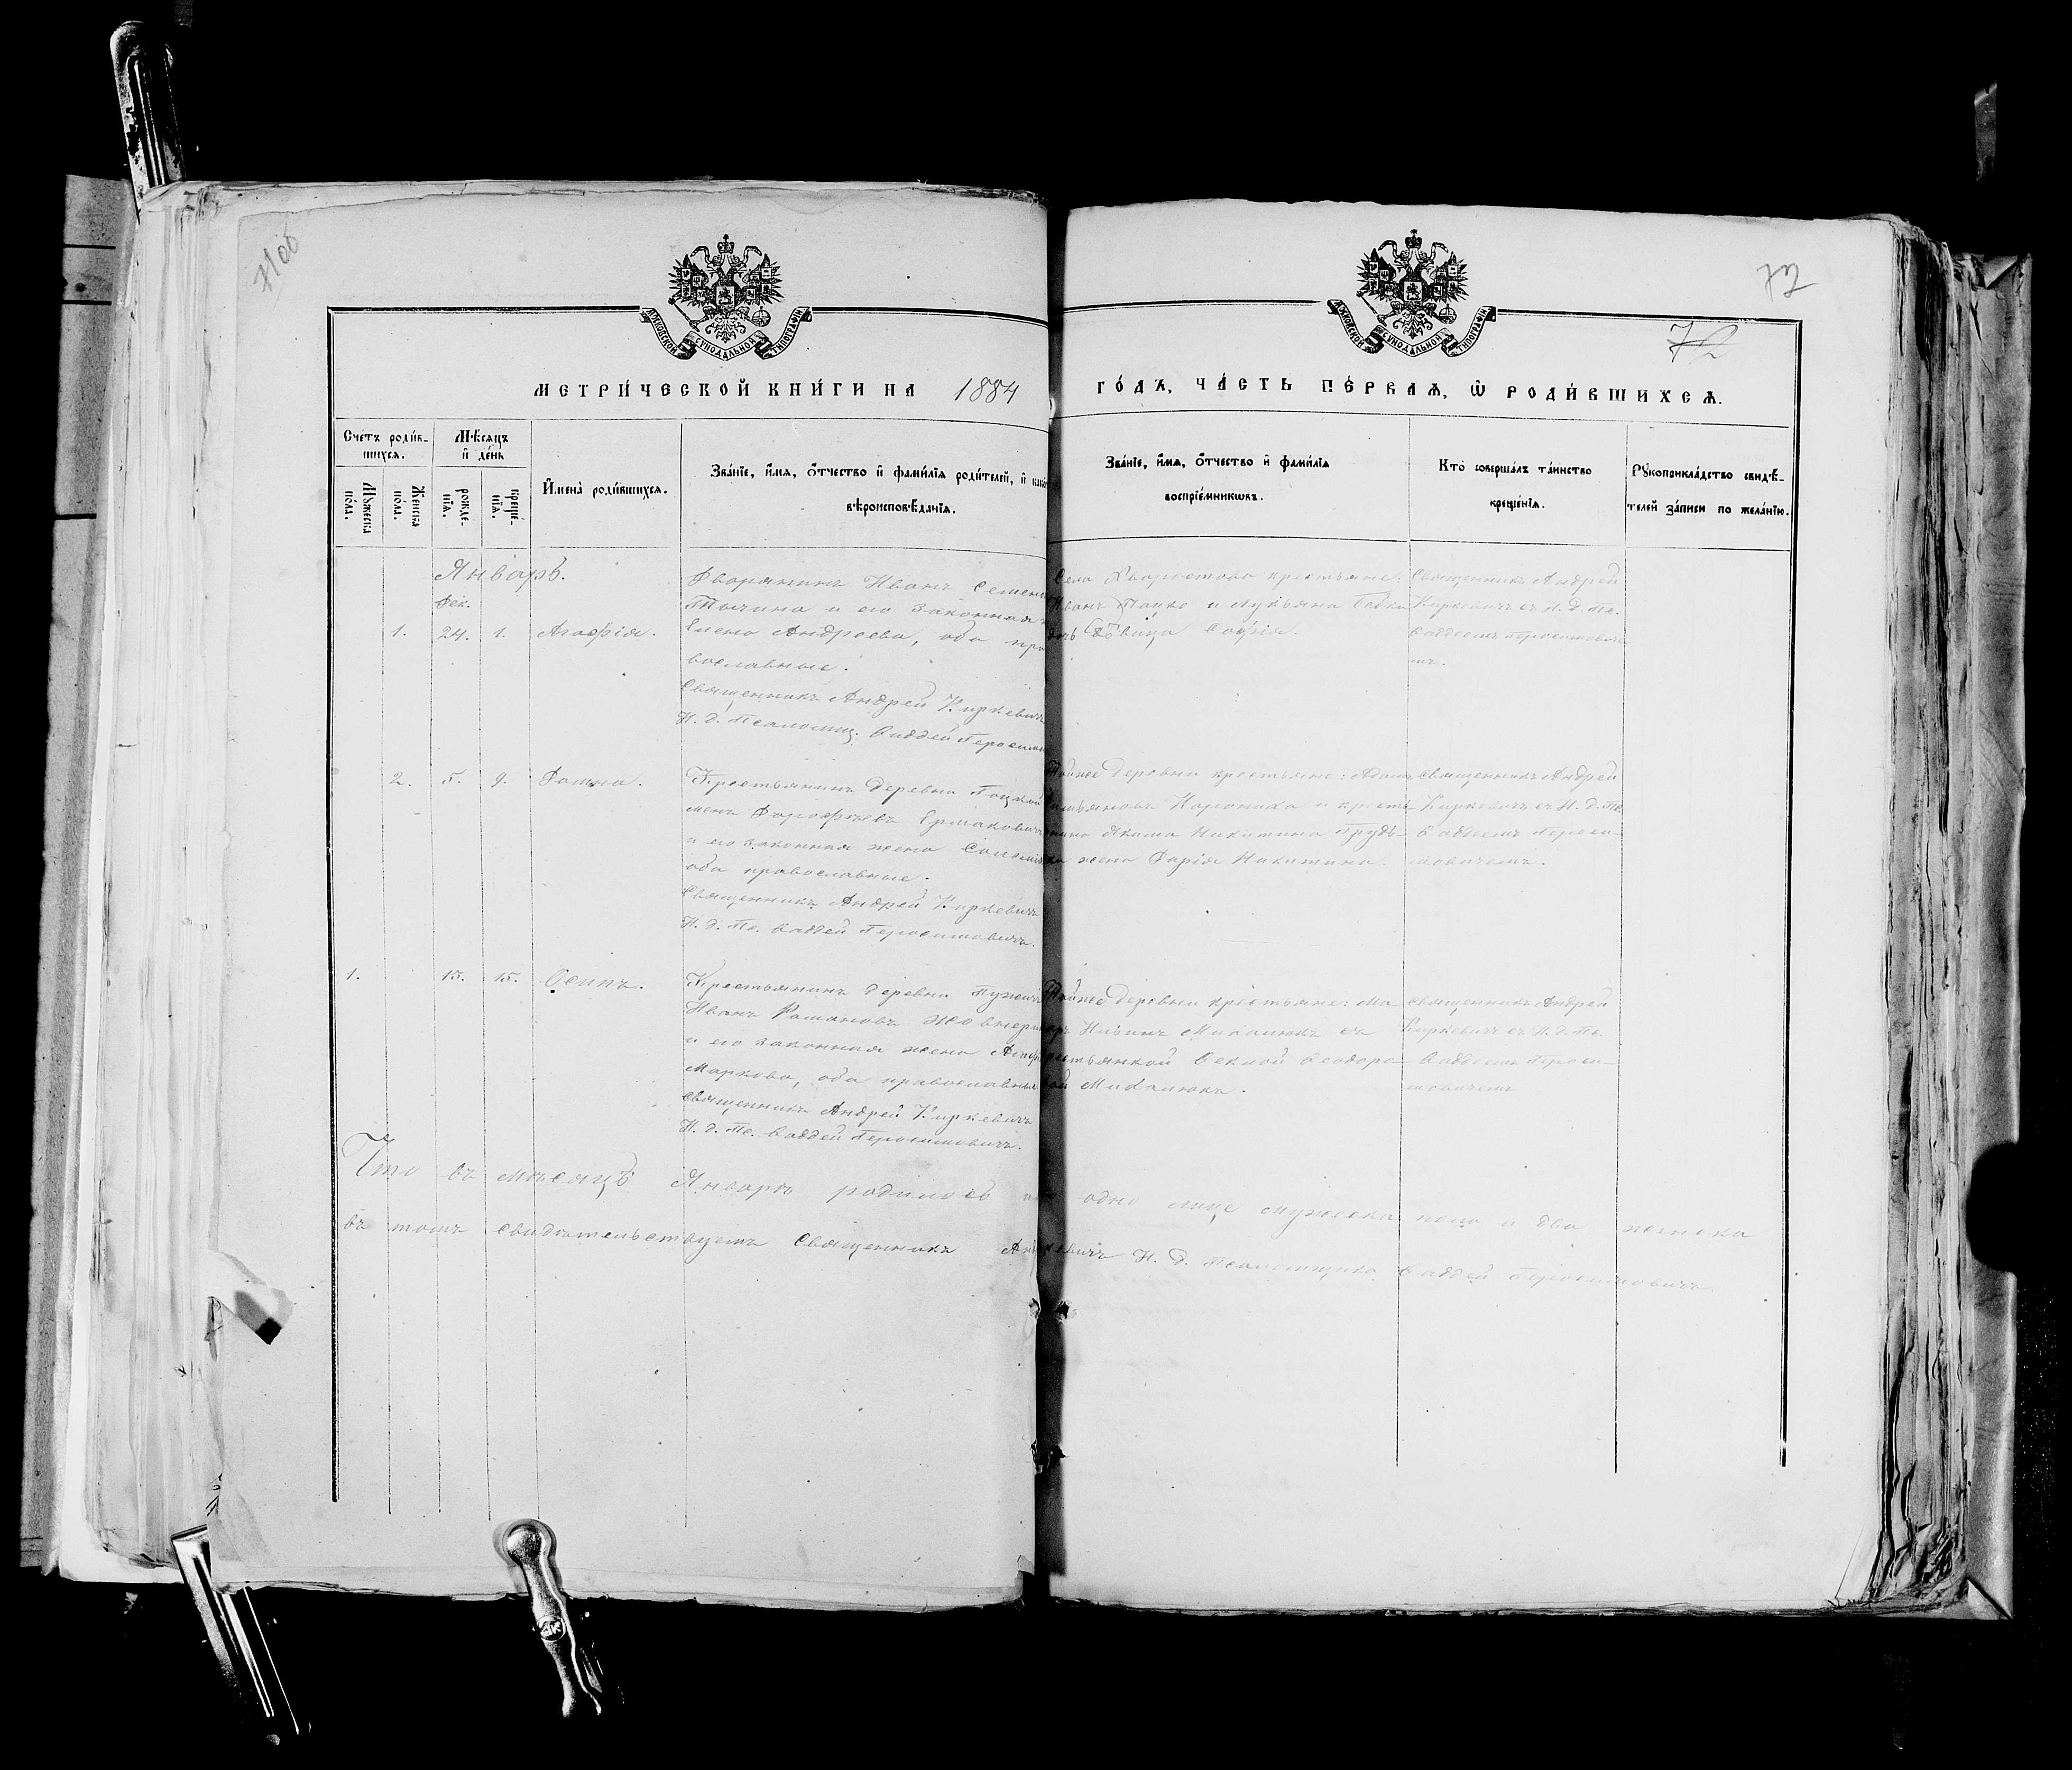 71 об
72
72
МОСКОВСКОЙ СУНОДАЛЬНОЙ ТИПОГРАФІИ
МОСКОВСКОЙ СУНОДАЛЬНОЙ ТИПОГРАФІИ
МЕТРИ́ЧЕСКОЙ КНИ́ГИ НА 1884 ГО́ДЪ, ЧА́СТЬ ПЕ́РВАѦ, Ѿ РОДИ́ВШИХСѦ.
Счетъ роди́в-
шихсѧ.
Мꙋжеска по́ла.
Женска по́ла.
Мѣсѧцъ
и҆ де́нь
рожде-
нїѧ.
креще́-
нїѧ.
И҆мена̀ роди́вшихсѧ.
Зва́нїе, и҆́мѧ, ѻ҆́тчество и҆ фами́лїѧ роди́телей, и҆ како
вѣроисповѣданїѧ.
Зва́нїе, и҆́мѧ, ѻ҆́тчество и҆ фами́лїѧ
воспрїе́мникѡвъ.
Кто̀ соверша́лъ та́инство
креще́нїѧ.
Рꙋкоприкла́дство свидѣ́-
телей за́писи по жела́нїю.
Январь.
Дек.
1. 24. 1. Агафія.
Дворянинъ Иванъ Семен
Тычина и его законная
Елена Андреева, оба пра
вославные.
Священникъ Андрей Киркевичъ
И. д. Псаломщ. Ѳаддей Герасим
Села Хворостова крестьяне:
Иванъ Пацко и Лукьяна Бобко
дочь дѣвица Софія.
Священникъ Андрей
Киркевичъ съ И. д. Пс.
Ѳаддеемъ Герасимовиче
мъ.
2. 5. 9. Домна.
Крестьянинъ деревни
Дорофѣевъ Ермаковичъ
и его законная жена
оба православные.
Священникъ Андрей Киркевичъ
И. д. Пс. Ѳаддей Герасимовичъ.
Тойже деревни крестьяне: Адам
и кресть
Никитина
жена Дарія Никитина.
Священникъ Андрей
Киркевичъ съ И. д. Пс.
Ѳаддеемъ Гераси-
мовичемъ.
1. 15. 15. Осипъ.
Крестьянинъ деревни
Иванъ Романовъ
и его законная жена
Маркова, оба православные
Священникъ Андрей Киркевичъ
И. д. Пс. Ѳаддей Герасимовичъ.
Тойже деревни крестьяне: Ма
Михалюкъ съ
рестьянкой Ѳеклой Ѳеодоро-
вой Михалюкъ.
Священникъ Андрей
Киркевичъ съ И. д. Пс.
Ѳаддеемъ Гераси-
мовичемъ
Что въ мѣсяцѣ Январѣ родилось одно лице мужеска пола и два женска
въ томъ свидѣтельствуемъ Священникъ И. д. Псаломщика Ѳаддей Герасимовичъ.